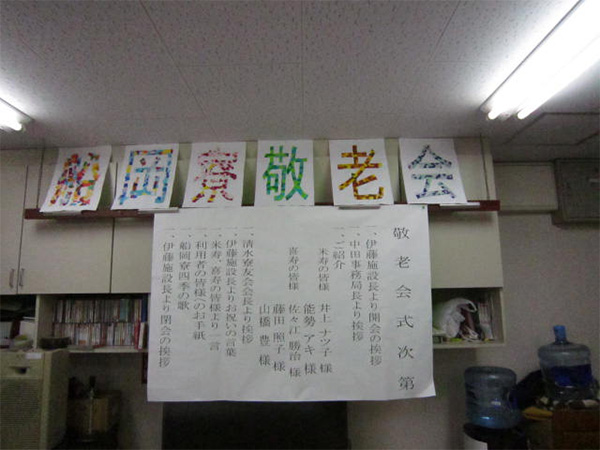 船岡寮敬老会
敬老会式次第
一、伊藤施設長より開会の挨拶
一、中田事務局長より挨拶
一、ご紹介
米寿の皆様 井上 ナツ子 様
能勢 アキ 様
喜寿の皆様 佐々江 勝治 様
藤田 照子 様
山橋 豊 様
一、清水寮友会会長より挨拶
一、伊藤施設長よりお祝いの言葉
一、米寿、喜寿の皆様より一言
一、利用者の皆様へのお手紙
一、船岡寮四季の歌
一、伊藤施設長より閉会の挨拶